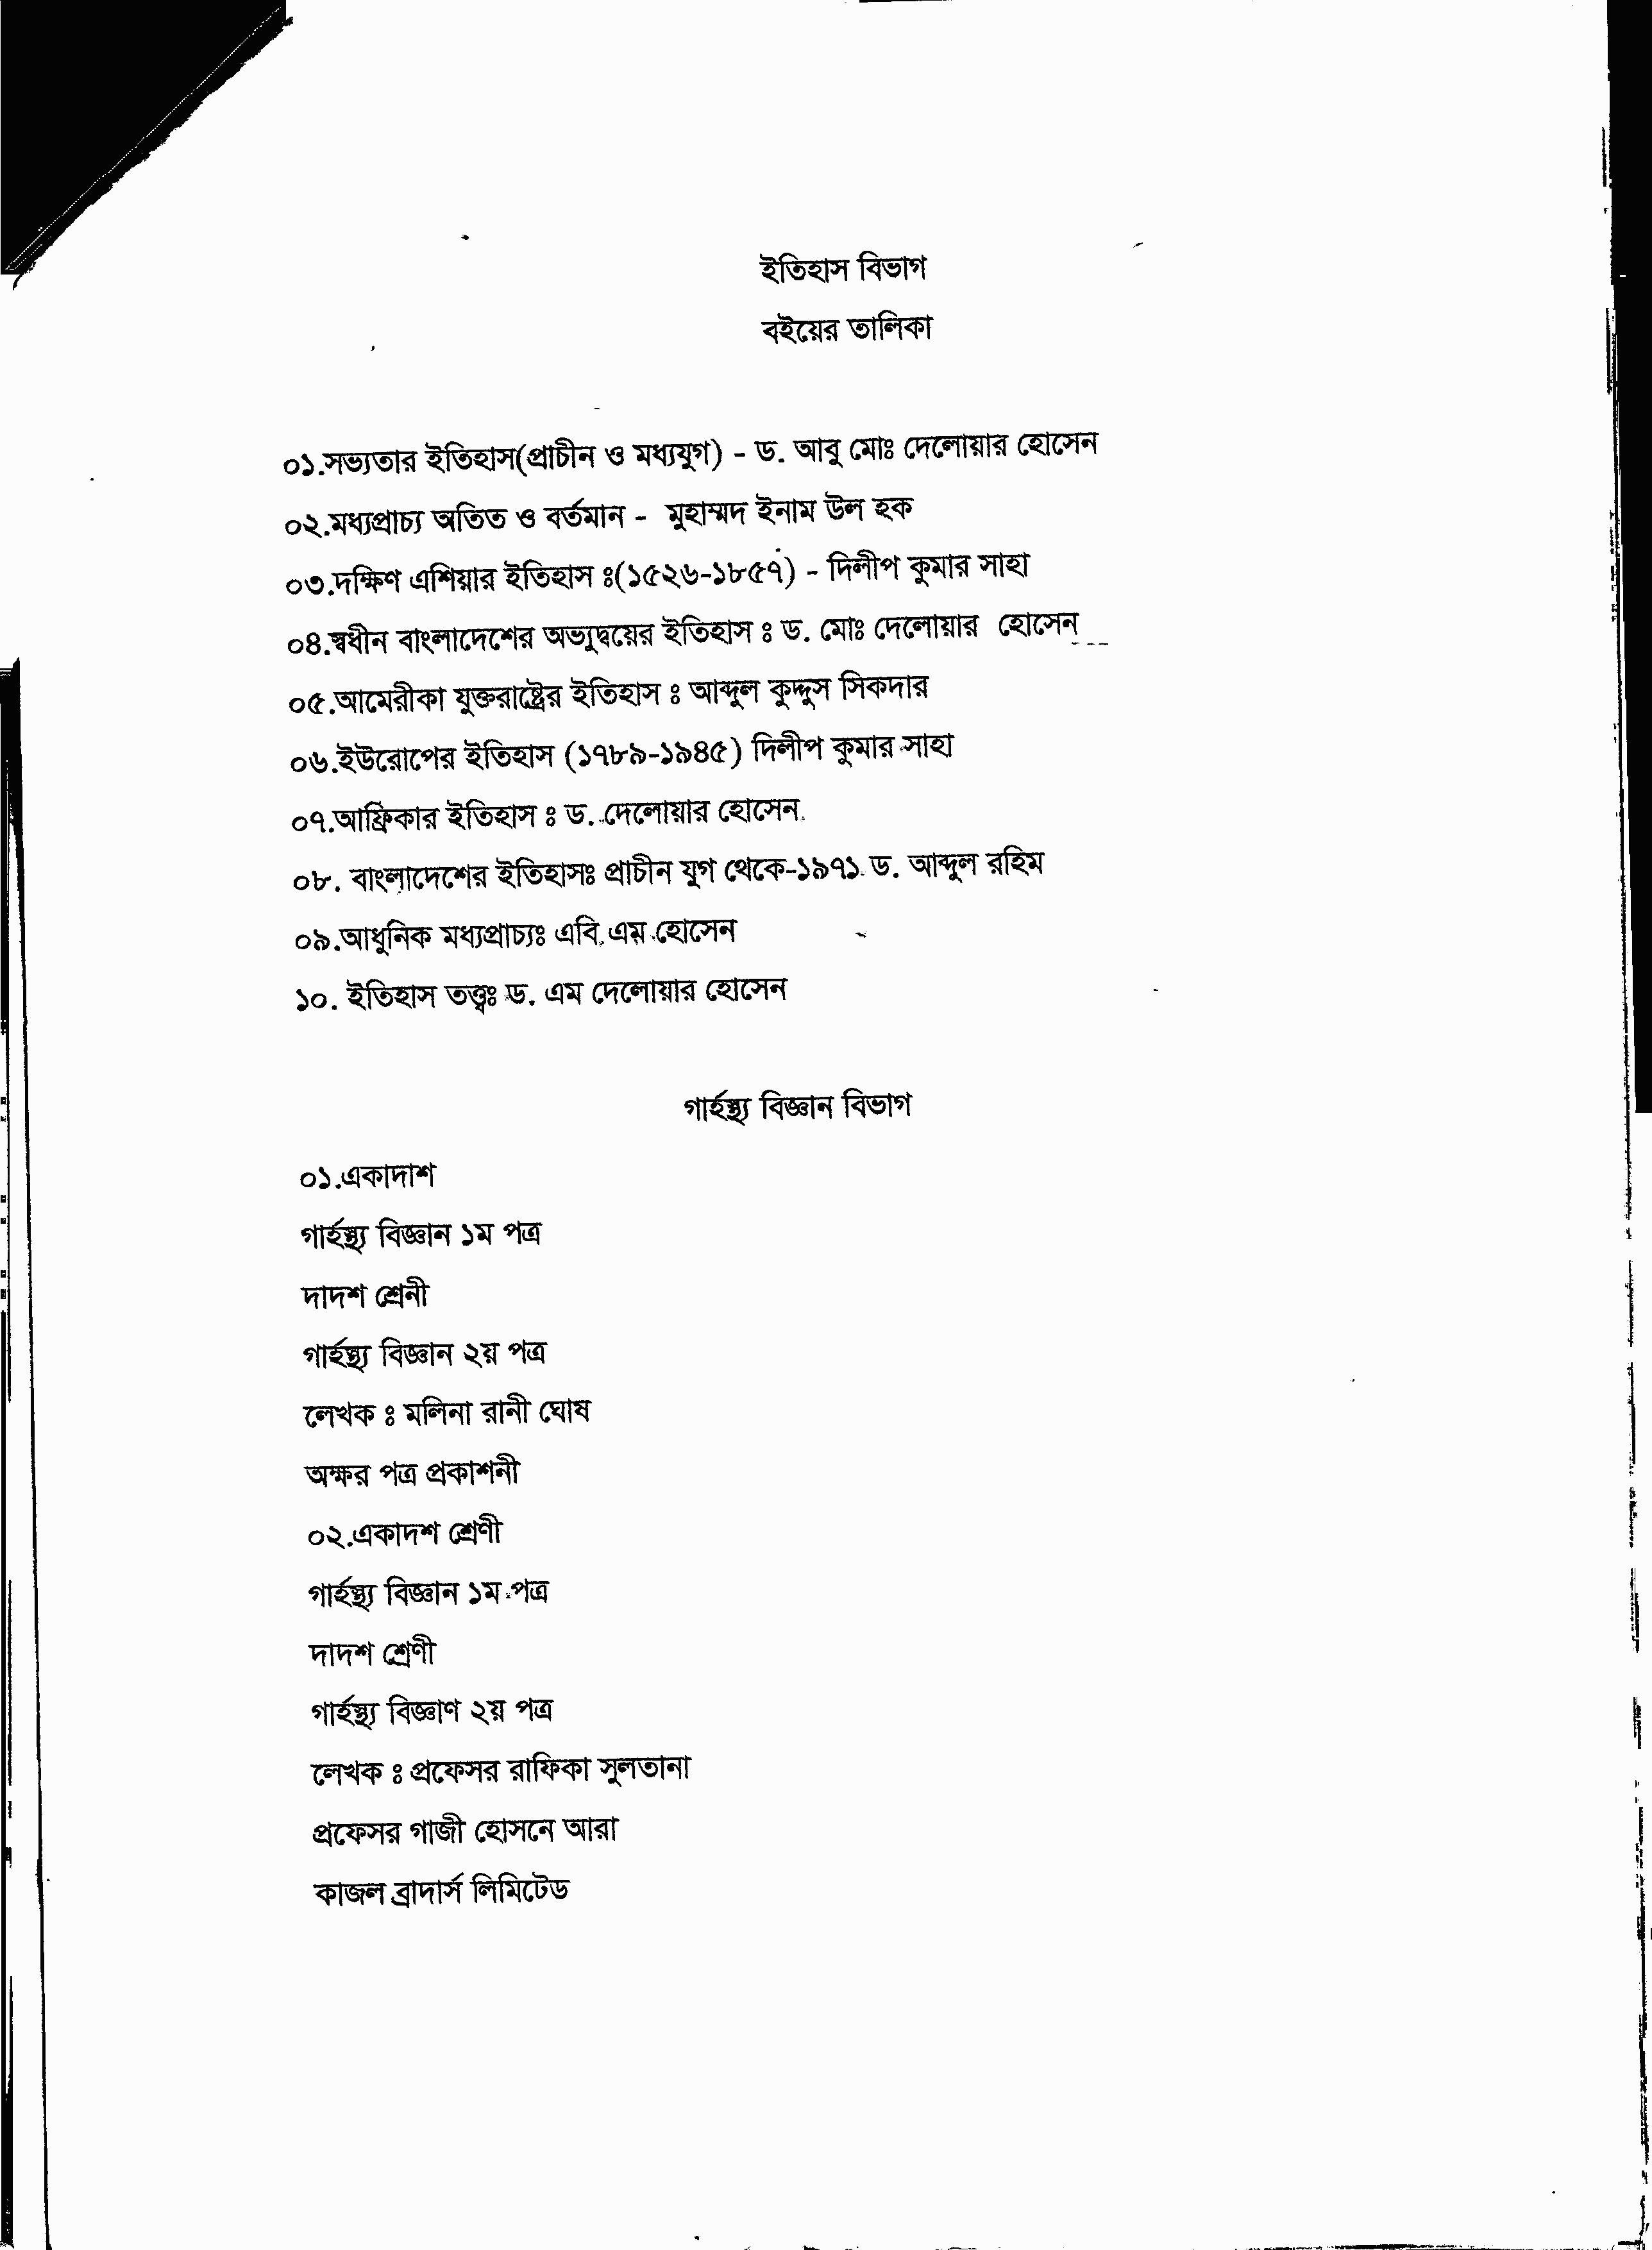 ইতিহাস বিভাগ
বইয়ের তালিকা
০১.সভ্যতার ইতিহাস(প্রাচীন ও মধ্যযুগ) - ড. আবু মোঃ দেলোয়ার হোসেন
০২.মধ্যপ্রাচ্য অতিত ও বর্তমান - মুহাম্মদ ইনাম উল হক
০৩.দক্ষিণ এশিয়ার ইতিহাস ঃ(১৫২৬-১৮৫৭) - দিলীপ কুমার সাহা
০৪.স্বধীন বাংলাদেশের অভ্যুদ্বয়ের ইতিহাস ঃ ড. মোঃ দেলোয়ার হোসেন
০৫.আমেরীকা যুক্তরাষ্ট্রের ইতিহাস ঃ আব্দুল কুদ্দুস সিকদার
০৬.ইউরোপের ইতিহাস (১৭৮৯-১৯৪৫) দিলীপ কুমার সাহা
০৭.আফ্রিকার ইতিহাস ঃ ড. দেলোয়ার হোসেন
০৮. বাংলাদেশের ইতিহাসঃ প্রাচীন যুগ থেকে-১৯৭১ ড. আব্দুল রহিম
০৯.আধুনিক মধ্যপ্রাচ্যঃ এবি এম হোসেন
১০. ইতিহাস তত্ত্বঃ ড. এম দেলোয়ার হোসেন
গার্হস্থ্য বিজ্ঞান বিভাগ
০১.একাদাশ
গার্হস্থ্য বিজ্ঞান ১ম পত্র
দাদশ শ্রেনী
গার্হস্থ্য বিজ্ঞান ২য় পত্র
লেখক ঃ মলিনা রানী ঘোষ
অক্ষর পত্র প্রকাশনী
০২.একাদশ শ্রেণী
গার্হস্থ্য বিজ্ঞান ১ম পত্র
দাদশ শ্রেণী
গার্হস্থ্য বিজ্ঞাণ ২য় পত্র
লেখক ঃ প্রফেসর রাফিকা সুলতানা
প্রফেসর গাজী হোসনে আরা
কাজল ব্রাদার্স লিমিটেড